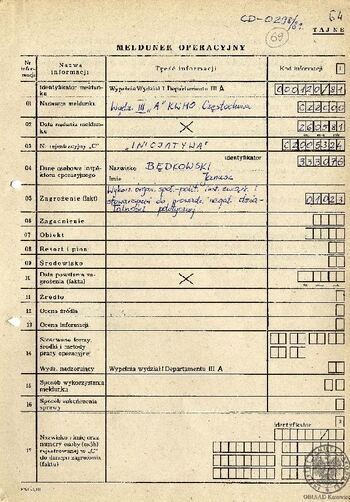 CD-0298/81.
64
TAJNE
69
MELDUNEK OPERACYJNY
Nr informacji
Nazwa informacji
Treść informacji
Kod informacji
Identyfikator meldunku
Wypełnia Wydział I Departamentu III A
000120/81
01
Nadawca meldunku
Wydz. III „A" KWMO Częstochowa
C22000
02
Data nadania meldunku
260581
03
Nr rejestracyjny „C"
„INICJATYWA"
C2005324
04
Dane osobowe inspektora operacyjnego
Nazwisko BĘDKOWSKI
Imię Janusz
identyfikator
333076
05
Zagrożenie (fakt)
Wykorz. organ. społ.-polit. inst. związk. i
stowarzyszeń do prowadz. negat. działalności politycznej
01023
06
Zagadnienie
07
Obiekt
08
Resort i pion
09
Środowisko
10
Data powstania zagrożenia (faktu)
11
Źródło
12
Ocena źródła
13
Ocena informacji
14
Stosowane formy, środki i metody pracy operacyjnej
Wydz. nadzorujący
Wypełnia wydział I Departamentu III A
15
Sposób wykorzystania meldunku
16
Sposób zakończenia sprawy
17
Nazwisko i imię oraz numery osoby (osób) rejestrowanej w „C" do danego zagrożenia (faktu)
identyfikator
OBUiAD Katowice